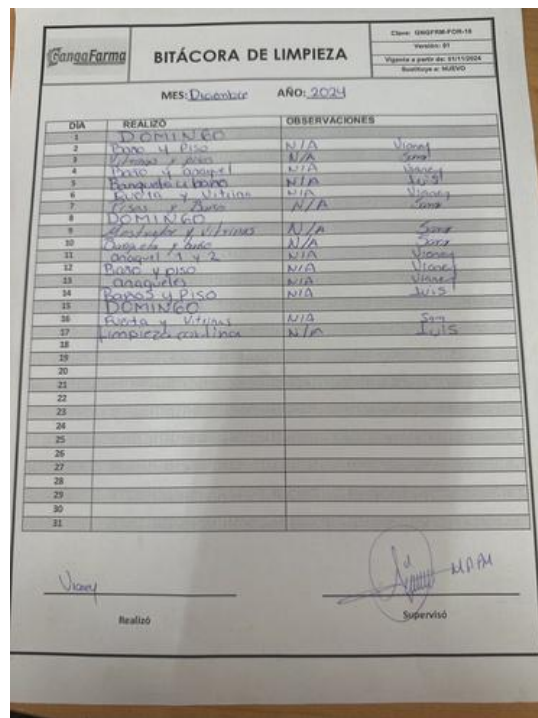 GangaFarma
BITÁCORA DE LIMPIEZA
Clave: GNGFRM-FOR-18
Versión: 01
Vigente a partir de: 01/11/2024
Sustituye a: NUEVO
MES: Diciembre AÑO: 2024
DÍA REALIZO OBSERVACIONES
1 DOMINGO
2 Baño y Piso N/A Vianey
3 Vitrinas y piso N/A Sara
4 Baño y anaquel N/A Vianey
5 Banqueta y baño N/A Luis
6 Puerta y Vitrina N/A Vianey
7 Pisos y Baño N/A Sara
8 DOMINGO
9 Mostrador y Vitrinas N/A Sara
10 Banqueta y baño N/A Sara
11 anaquel 1 y 2 N/A Vianey
12 Baño y piso N/A Vianey
13 anaqueles N/A Vianey
14 Baños y Piso N/A Luis
15 DOMINGO
16 Puerta y Vitrinas N/A
17 Limpieza N/A Luis
18
19
20
21
22
23
24
25
26
27
28
29
30
31
Vianey MAPM
Realizó Supervisó